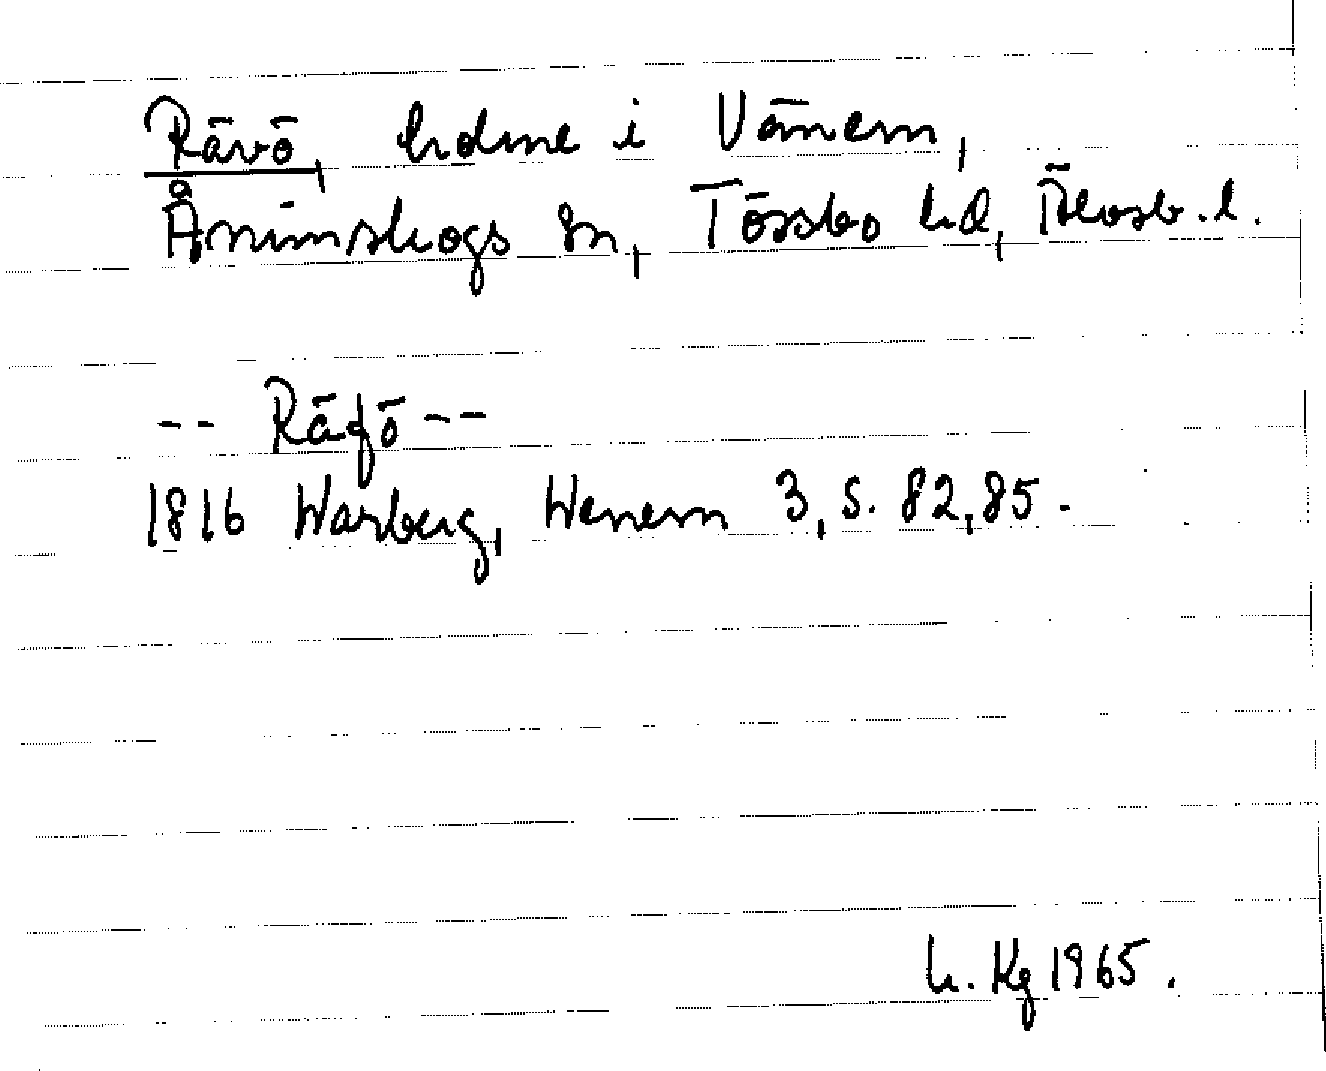 Rävö, holme i Vänern,
Ånimskogs sn, Tössbo hd, Älvsb. l.
-- Räfö --
1816 Warberg, Wenern 3, s. 82, 85.
h. Kg 1965.